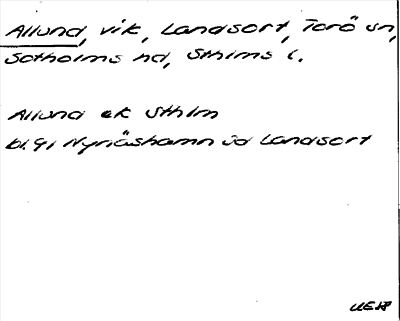 Allund, vik, Landsort, Torö sn,
Sotholms hd, Sthlms l.
Allund ek Sthlm
bl. 91 Nynäshamn so Landsort